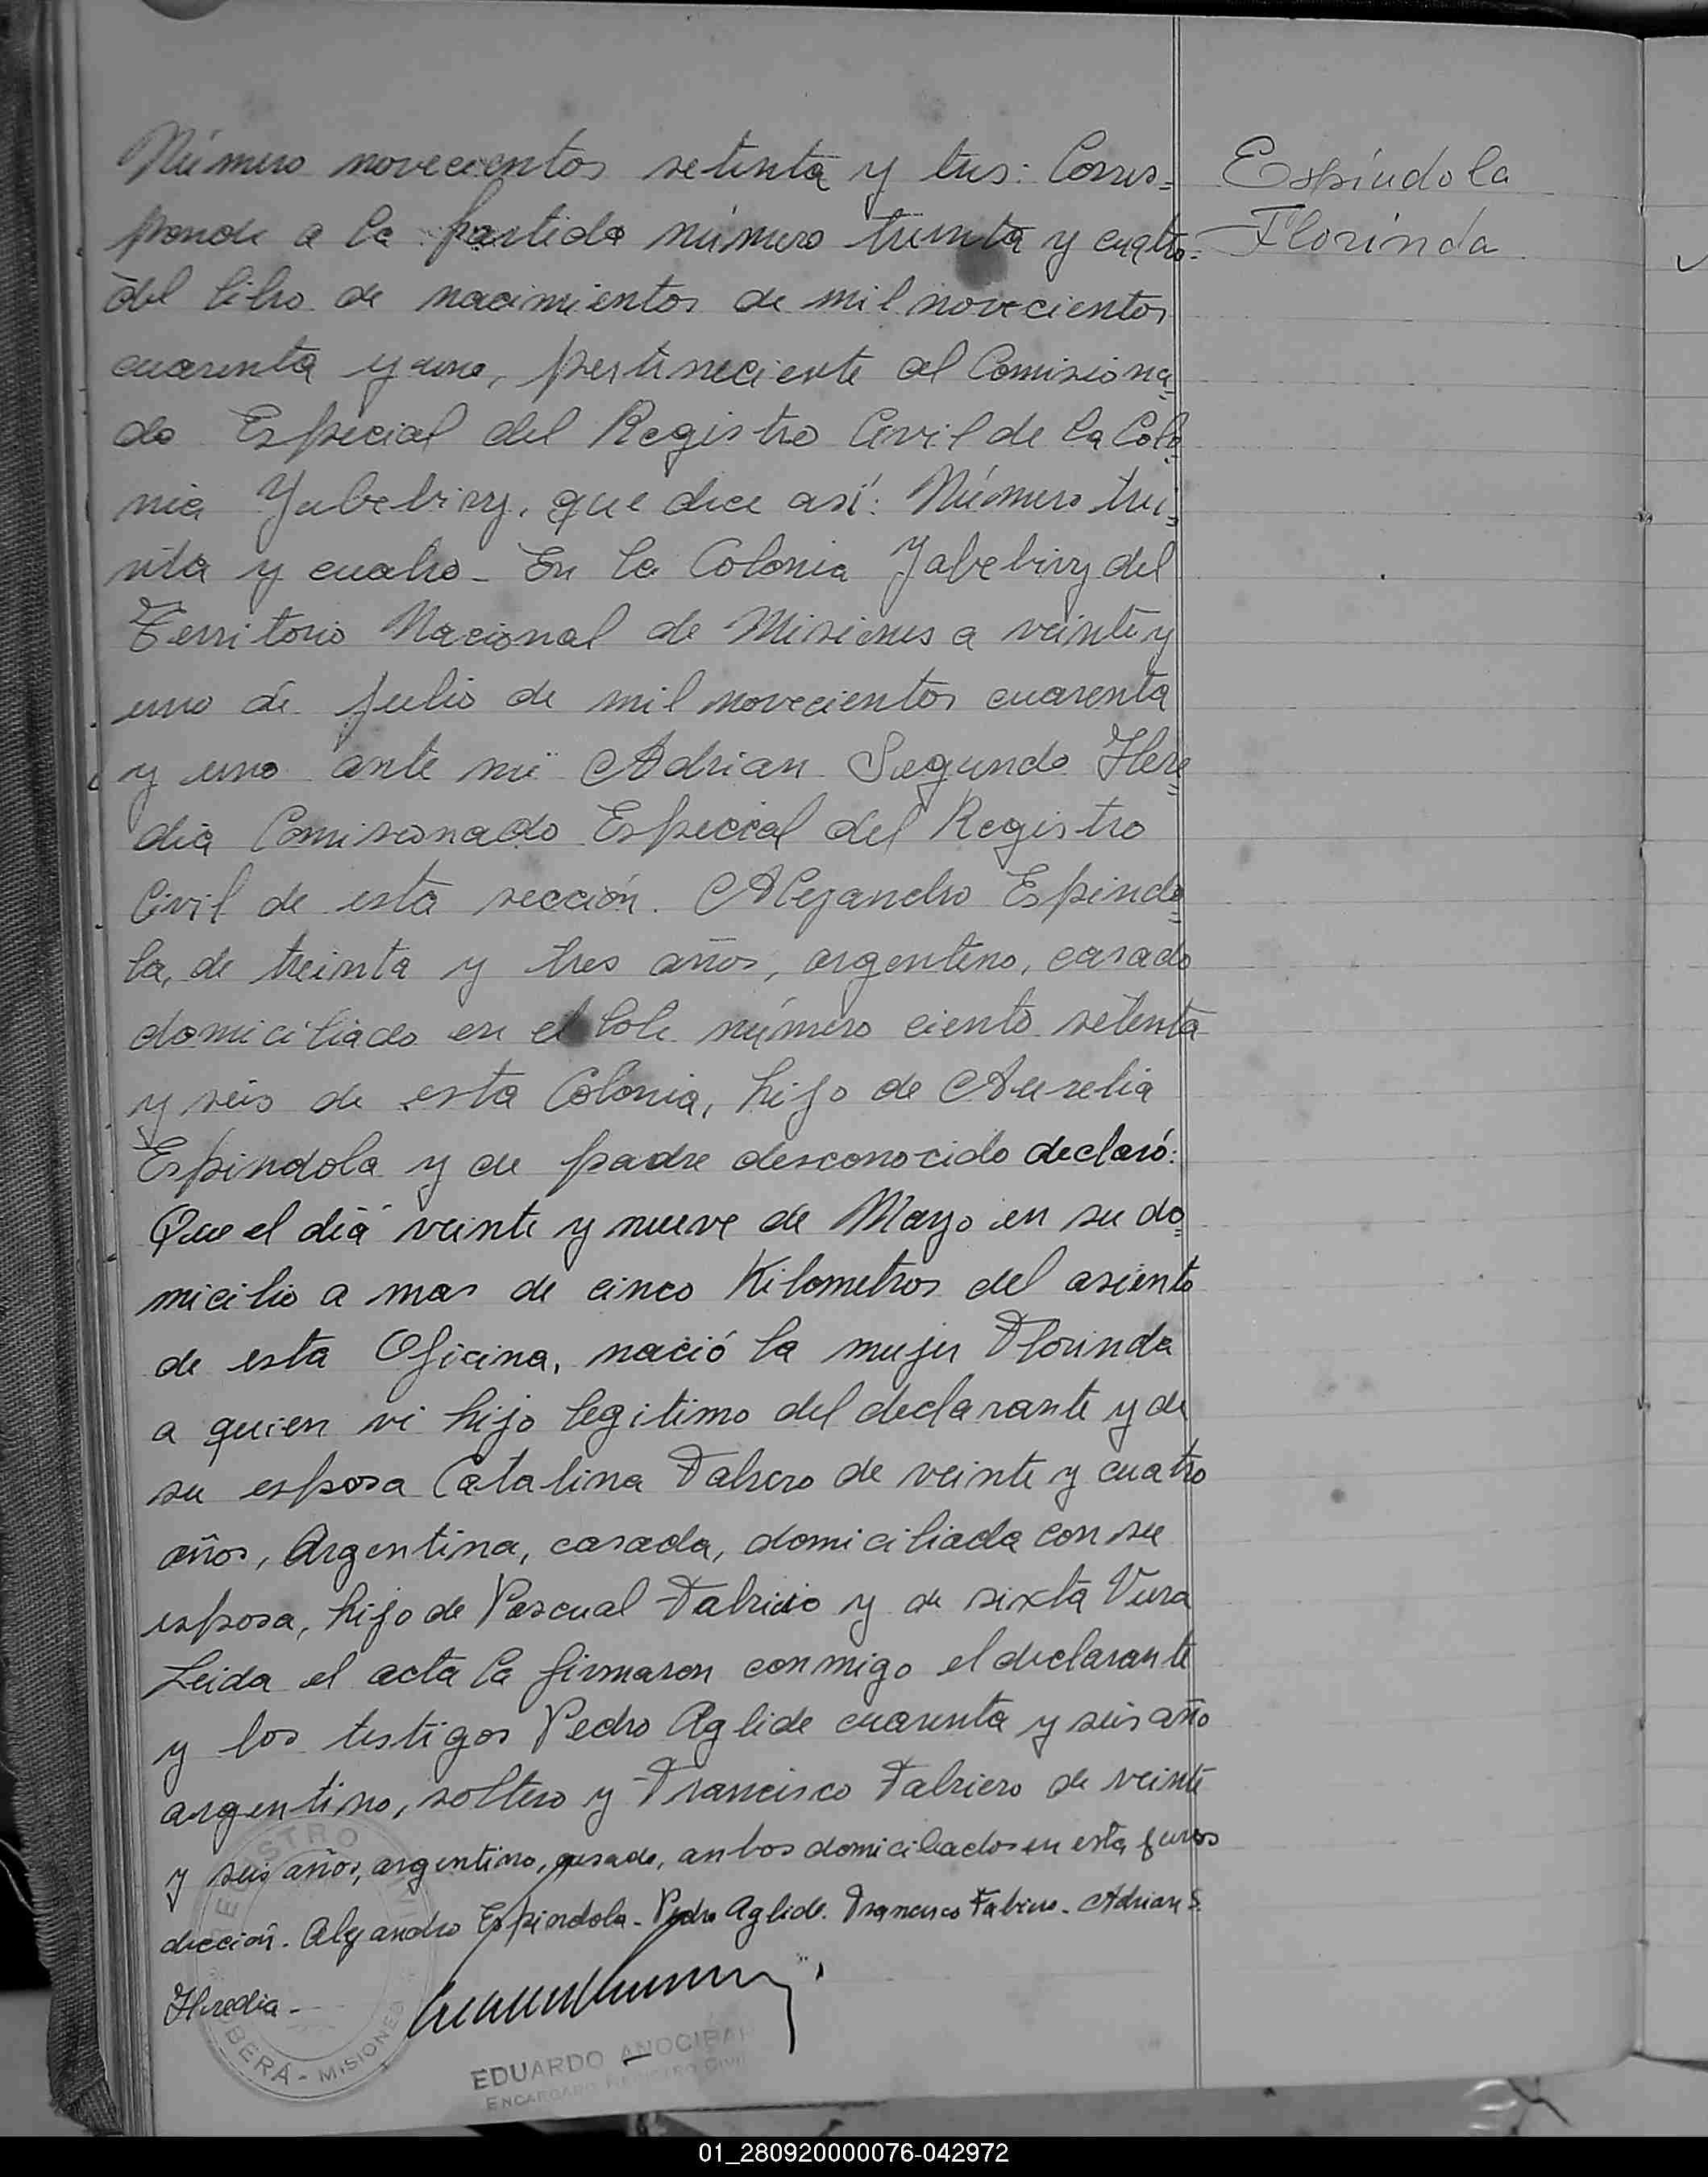 Número novecientos setenta y tres: Corres=
ponde a la partida número treinta y cuatro=
del libro de nacimientos de mil novecientos
cuarenta y uno, perteneciente al Comisiona=
do Especial del Registro Civil de la Colo=
nia Yabebiry, que dice así: Número trei=
nta y cuatro_ En la Colonia Yabebiry del
Territorio Nacional de Misiones a veinte y
uno de Julio de mil novecientos cuarenta
y uno ante mi Adrian Segundo Here=
dia Comisionado Especial del Registro
Civil de esta sección. Alejandro Espindo=
la, de treinta y tres años, argentino, casado
domiciliado en el lote número ciento setenta
y seis de esta Colonia, hijo de Aurelia
Espindola y de padre desconocido declaró:
Que el día veinte y nueve de Mayo en su do=
micilio a mas de cinco Kilometros del asiento
de esta Oficina, nació la mujer Florinda
a quien vi hijo legitimo del declarante y de
su esposa Catalina Fabrero de veinte y cuatro
años, Argentina, casada, domiciliada con su
esposa, hijo de Pascual Fabricio y de sixta Vera
Leida el acta la firmaron conmigo el declarante
y los testigos Pedro Aglide cuarenta y seis año
argentino, soltero y Francisco Fabriero de veinte
y seis años, argentino, casado, anbos domiciliados en esta juris
dicción. Alejandro Espindola_ Pedro Aglide. Francisco Fabriero_ Adrian S.
Heredia_
Espíndola
Florinda
REGISTRO
OBERÁ - MISIONES
EDUARDO ANOCIBAR
ENCARGADO REGISTRO CIVIL
01_280920000076-042972